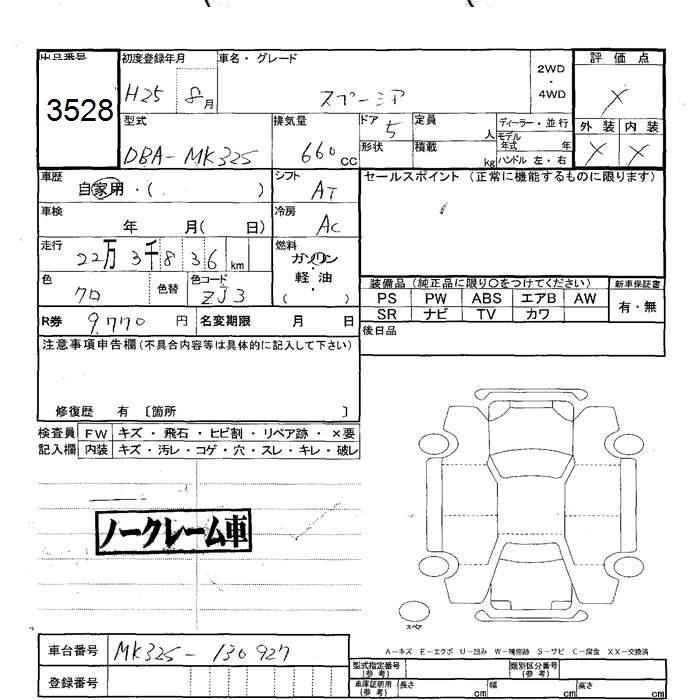 出品番号 初度登録年月 車名・グレード 評価点
3528 H25 8月 スペーシア 2WD・4WD X
型式 排気量 ドア 定員 ディーラー・並行 外装 内装
DBA-MK32S 660cc 5 人 モデル年式 年 X X
形状 積載 kg ハンドル 左・右
車歴 シフト セールスポイント (正常に機能するものに限ります)
自家用・( ) AT
車検 冷房
年 月( 日) AC
走行 燃料
22万3千836km ガソリン
色 色替 色コード 軽油
クロ ZJ3 ( )
装備品(純正品に限り○をつけてください) 新車保証書
PS PW ABS エアB AW 有・無
SR ナビ TV カワ
R券 9,770円 名変期限 月 日
後日品
注意事項申告欄(不具合内容等は具体的に記入して下さい)
修復歴 有 〔箇所 〕
検査員 FW キズ・飛石・ヒビ割・リペア跡・×要
記入欄 内装 キズ・汚レ・コゲ・穴・スレ・キレ・破レ
ノークレーム車
スペア
A-キズ E-エクボ U-凹み W-補修跡 S-サビ C-腐食 XX-交換済
車台番号 MK32S-130927
型式指定番号(参考) 類別区分番号(参考)
登録番号
車庫証明用(参考) 長さ cm 幅 cm 高さ cm